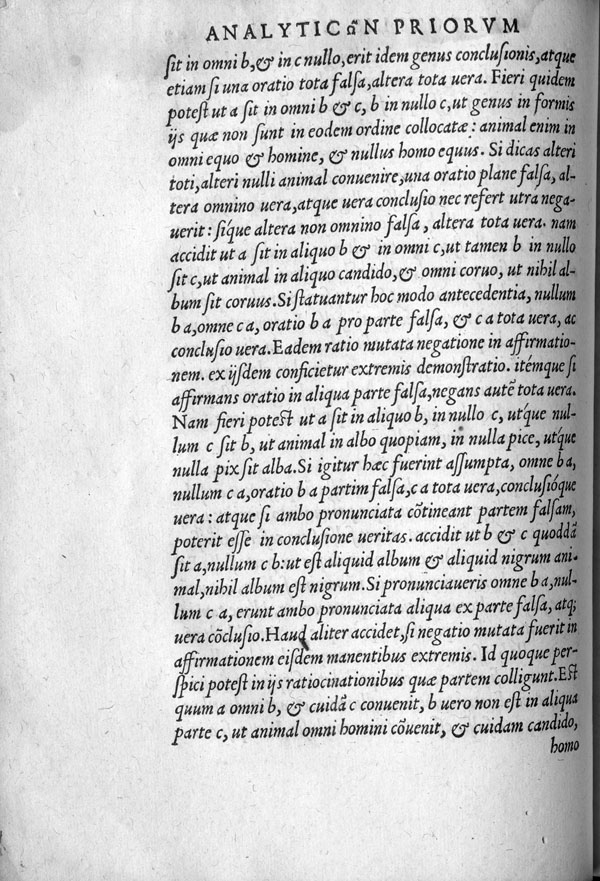 ANALYTICῶN PRIORVM
sit in omni b, & in c nullo, erit idem genus conclusionis, atque
etiam si una oratio tota falsa, altera tota uera. Fieri quidem
potest ut a sit in omni b & c, b in nullo c, ut genus in formis
ijs quæ non sunt in eodem ordine collocatæ: animal enim in
omni equo & homine, & nullus homo equus. Si dicas alteri
toti, alteri nulli animal conuenire, una oratio plane falsa, al-
tera omnino uera, atque uera conclusio nec refert utra nega-
uerit: síque altera non omnino falsa, altera tota uera. nam
accidit ut a sit in aliquo b & in omni c, ut tamen b in nullo
sit c, ut animal in aliquo candido, & omni coruo, ut nihil al-
bum sit coruus. Si statuantur hoc modo antecedentia, nullum
b a, omne c a, oratio b a pro parte falsa, & c a tota uera, ac
conclusio uera. Eadem ratio mutata negatione in affirmatio-
nem. ex ijsdem conficietur extremis demonstratio. itémque si
affirmans oratio in aliqua parte falsa, negans autē tota uera.
Nam fieri potest ut a sit in aliquo b, in nullo c, utque nul-
lum c sit b, ut animal in albo quopiam, in nulla pice, utque
nulla pix sit alba. Si igitur hæc fuerint assumpta, omne b a,
nullum c a, oratio b a partim falsa, c a tota uera, conclusióque
uera: atque si ambo pronunciata cōtineant partem falsam,
poterit esse in conclusione ueritas. accidit ut b & c quoddā
sit a, nullum c b: ut est aliquid album & aliquid nigrum ani-
mal, nihil album est nigrum. Si pronunciaueris omne b a, nul-
lum c a, erunt ambo pronunciata aliqua ex parte falsa, atq;
uera cōclusio. Haud aliter accidet, si negatio mutata fuerit in
affirmationem eisdem manentibus extremis. Id quoque per-
spici potest in ijs ratiocinationibus quæ partem colligunt. Est
quum a omni b, & cuidā c conuenit, b uero non est in aliqua
parte c, ut animal omni homini cōuenit, & cuidam candido,
homo